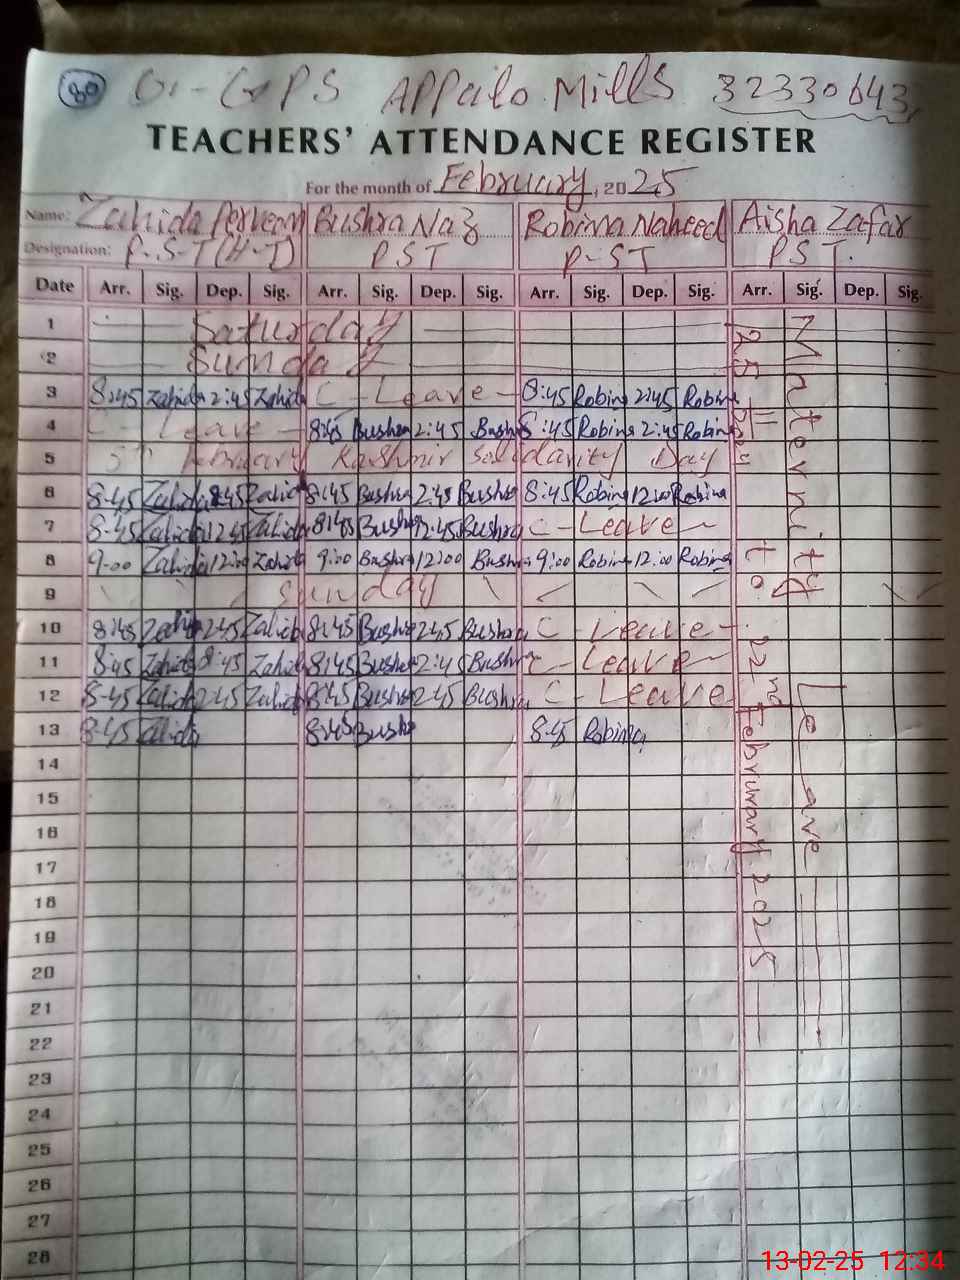 80 G-GPS Appailo Mills 32330643
TEACHERS' ATTENDANCE REGISTER
For the month of February, 2025
Name: Zahida Perveen Bushra Naz Robina Naheed Aisha Zafar
Designation: P.S-T (H-T) PST P-ST PST.
Date Arr. Sig. Dep. Sig. Arr. Sig. Dep. Sig. Arr. Sig. Dep. Sig. Arr. Sig. Dep. Sig.
1 Saturday
2 Sunday
3 8:45 Zahida 2:45 Zahida C - Leave - 8:45 Robina 2:45 Robina
4 C Leave - 8:45 Bushra 2:45 Bushra 8:45 Robina 2:45 Robina
5 5th February Kashmir Solidarity Day
6 8-45 Zahida Zahida 8:45 Bushra 2:45 Bushra 8:45 Robina 12:00 Robina
7 8-45 Zahida 12:45 Zahida 8:45 Bushra 12:45 Bushra C - Leave -
8 9-00 Zahida 12:00 Zahida 9:00 Bushra 12:00 Bushra 9:00 Robina 12:00 Robina
9 Sunday
10 8:45 Zahida 2:45 Zahida 8:45 Bushra 2:45 Bushra C - Leave -
11 8:45 Zahida :45 Zahida 8:45 Bushra 2:45 Bushra C - Leave -
12 8-45 Zahida 2:45 Zahida 8:45 Bushra 2:45 Bushra C - Leave
13 8-45 Zahida 8:45 Bushra 8-45 Robina
14
15
16
17
18
19
20
21
22
23
24
25
26
27
28
Mnternity Leave
to 22nd February 2025
13-02-25 12:34